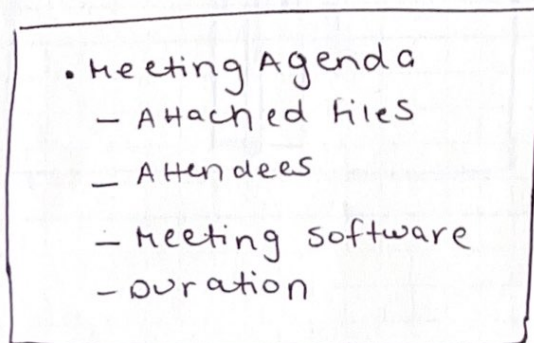 • Meeting Agenda
– Attached files
– Attendees
– Meeting software
– Duration